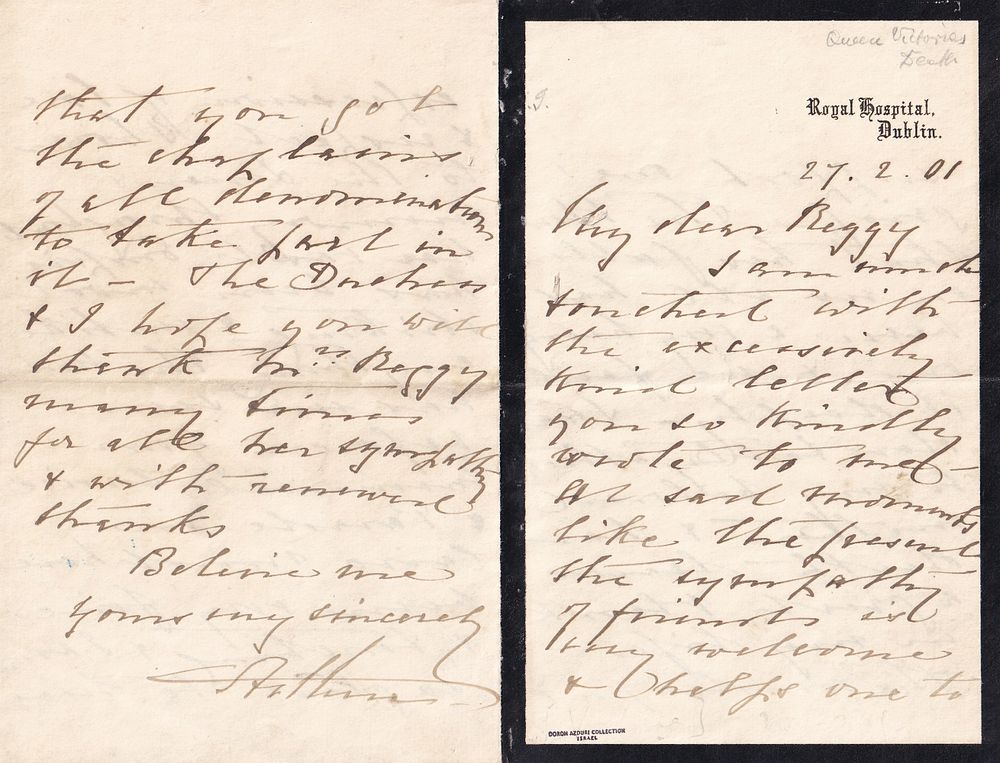 Queen Victorias
Death
Royal Hospital,
Dublin.
27. 2. 01
My dear Reggy
I am much
touched with
the excessively
kind letter
you so kindly
wrote to me
At sad moments
like the present
the sympathy
of friends is
very welcome
& helps one to
DORON AZOURI COLLECTION
ISRAEL
that you got
the chaplains
of all denominations
to take part in
it – The Duchess
& I hope you will
thank Mrs Reggy
many times
for all her sympathy
& with renewed
thanks
Believe me
yours very sincerely
Arthur